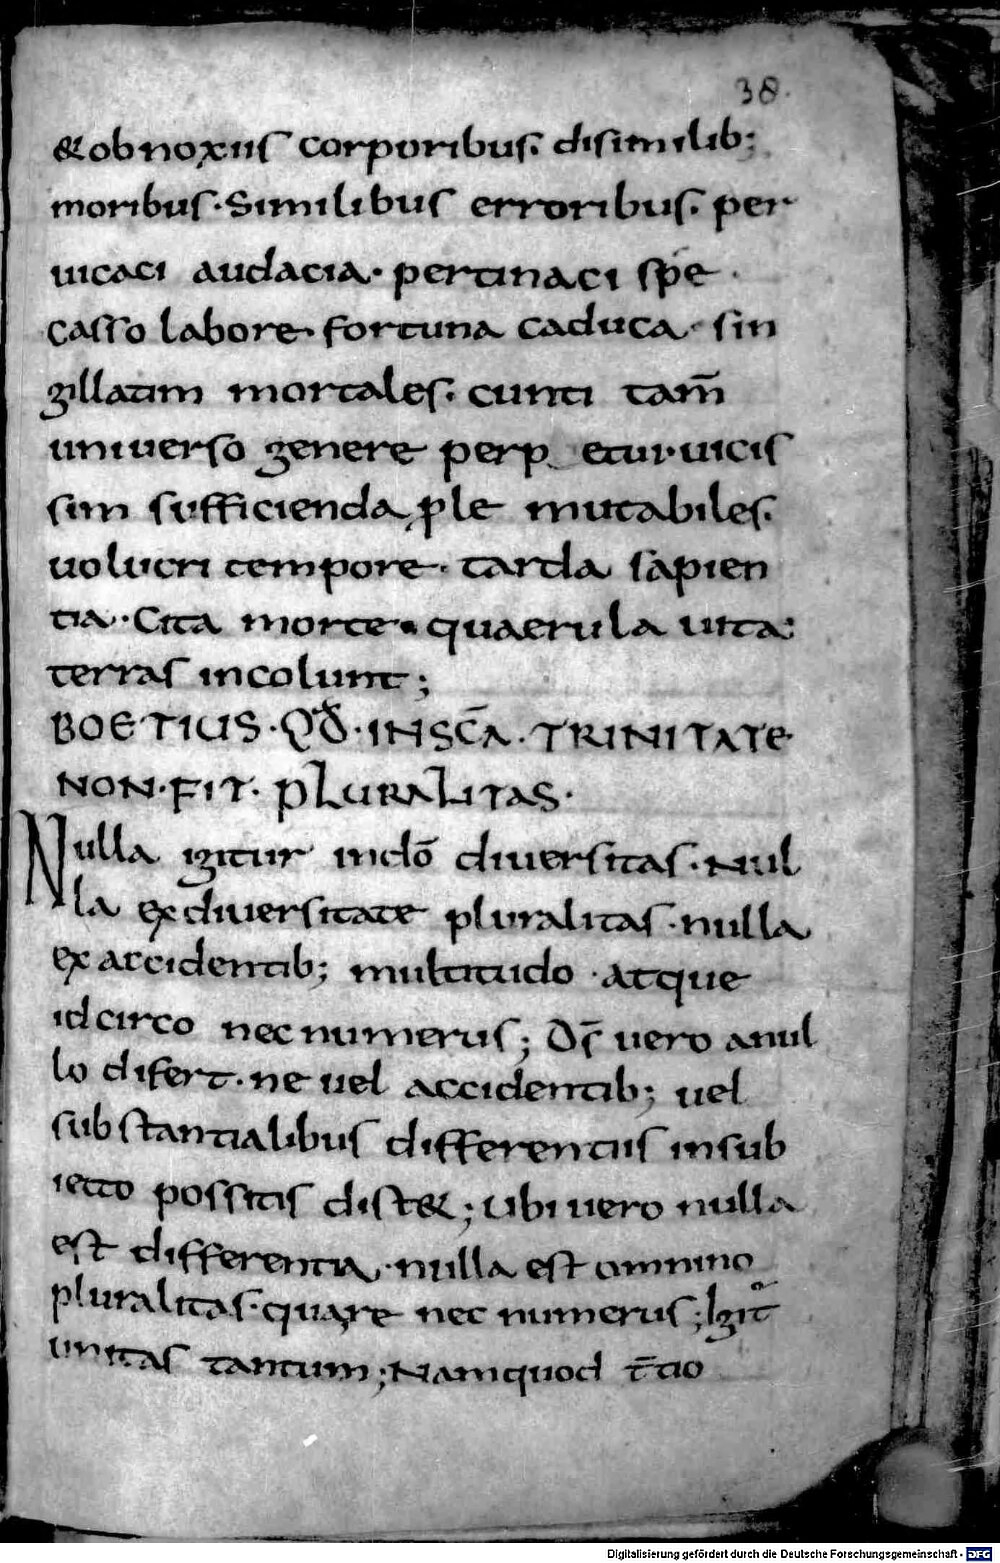 38.
& obnoxiis corporibus. disimilib;
moribus. Similibus erroribus. per
uicaci audacia. pertinaci spe
casso labore. fortuna caduca. sin
gillatim mortales. cuncti tam̄
uniuerso genere perp etui. uicis
sim sufficienda ꝓle mutabiles.
uolucri tempore. tarda sapien
tia. Cita morte. quaerula uita:
terras incolunt;
BOETIUS. QD̄. IN SC̄A. TRINITATE
NON. FIT. PLURALITAS.
Nulla igitur in dō diuersitas. Nul
la ex diuersitate pluralitas. nulla
ex accidentib; multitudo. atque
idcirco nec numerus; D̄s uero a nul
lo difert. ne uel accidentib; uel
substantialibus differentiis in sub
iecto possitis dist&; Ubi uero nulla
est differentia. nulla est omnino
pluralitas. quare nec numerus; Igit᷑
unitas tantum; Nam quod t̄tio
Digitalisierung gefördert durch die Deutsche Forschungsgemeinschaft - DFG